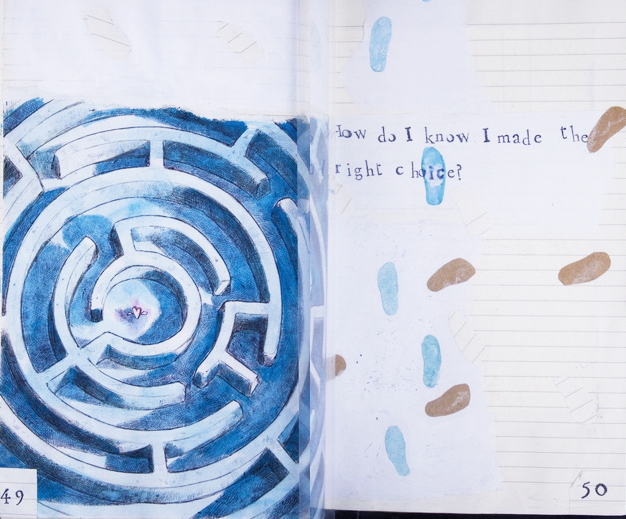 How do I know I made the
right choice?
49
50